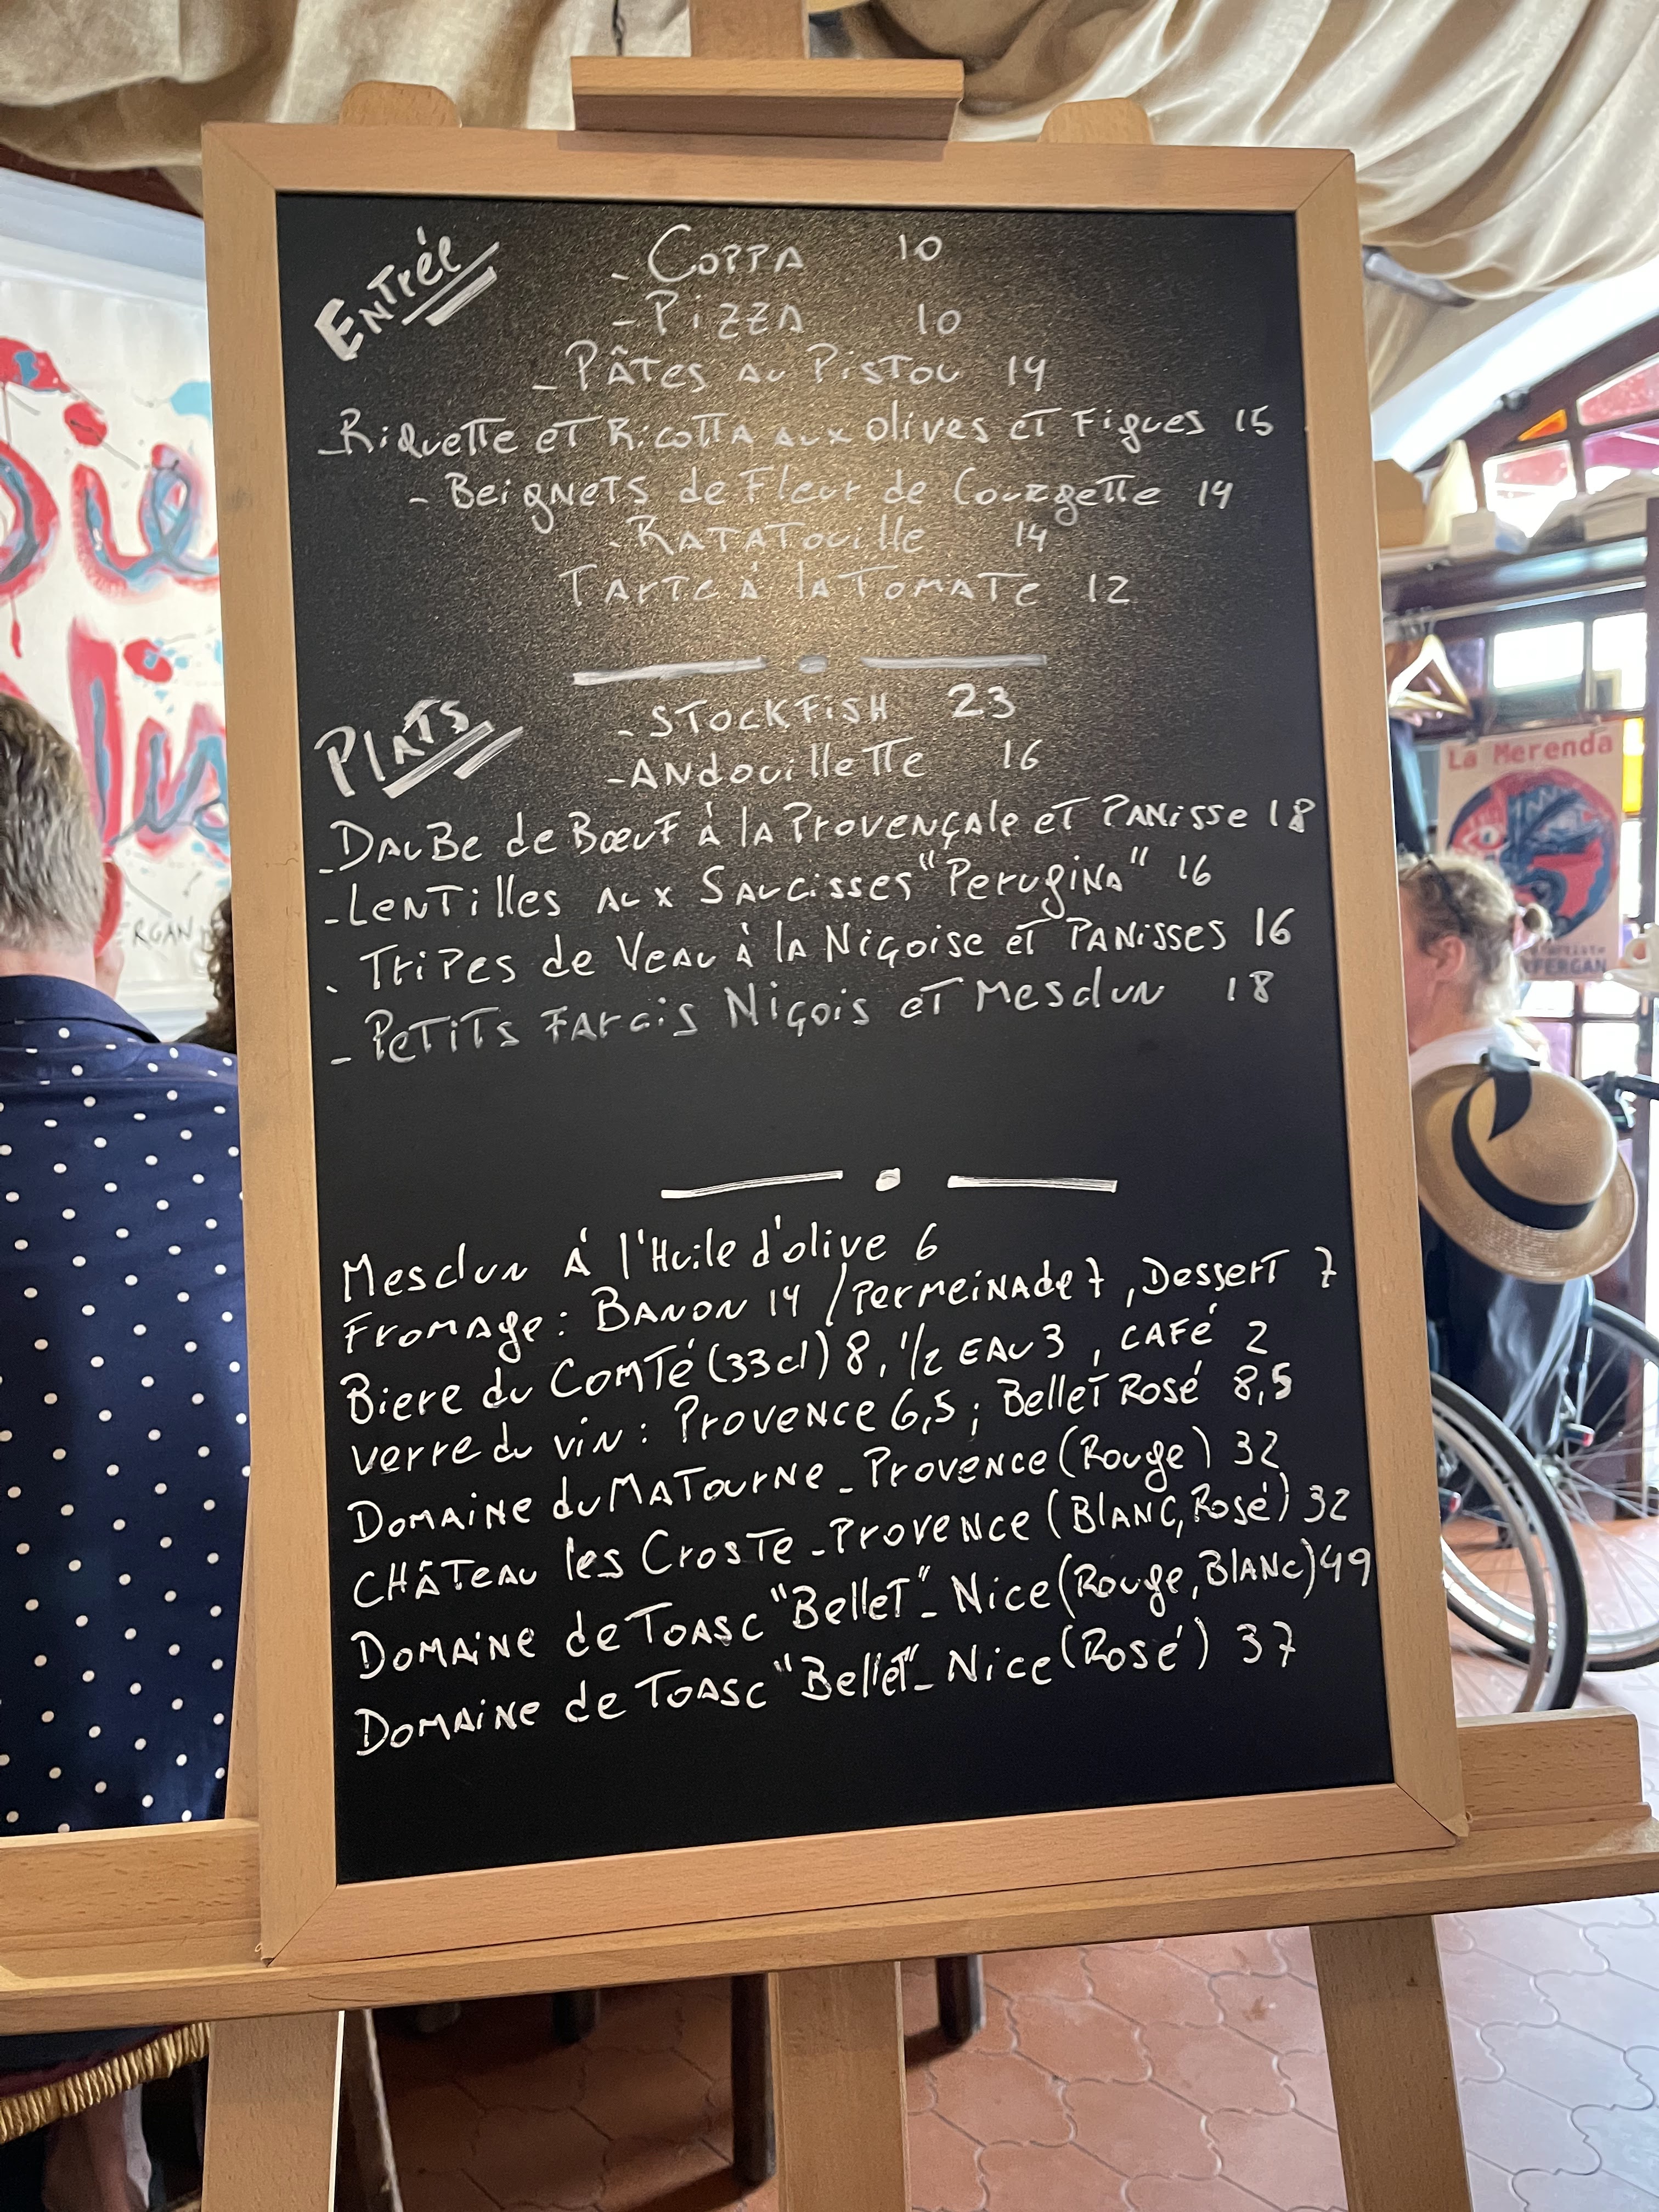 Entrée
- Coppa 10
- Pizza 10
- Pâtes au Pistou 14
- Riquette et Ricotta aux olives et Figues 15
- Beignets de Fleur de Courgette 14
- Ratatouille 14
Tarte à la Tomate 12
Plats
- Stockfish 23
- Andouillette 16
- Daube de Bœuf à la Provençale et Panisse 18
- Lentilles aux Saucisses "Perugina" 16
- Tripes de Veau à la Niçoise et Panisses 16
- Petits Farcis Niçois et Mesclun 18
Mesclun à l'Huile d'olive 6
Fromage : Banon 14 / Permeinade 7, Dessert 7
Biere du Comté (33cl) 8, 1/2 Eau 3, Café 2
verre du vin : Provence 6,5 ; Bellet Rosé 8,5
Domaine du Matourne - Provence (Rouge) 32
Château les Croste - Provence (Blanc, Rosé) 32
Domaine de Toasc "Bellet" - Nice (Rouge, Blanc) 49
Domaine de Toasc "Bellet" - Nice (Rosé) 37
La Merenda